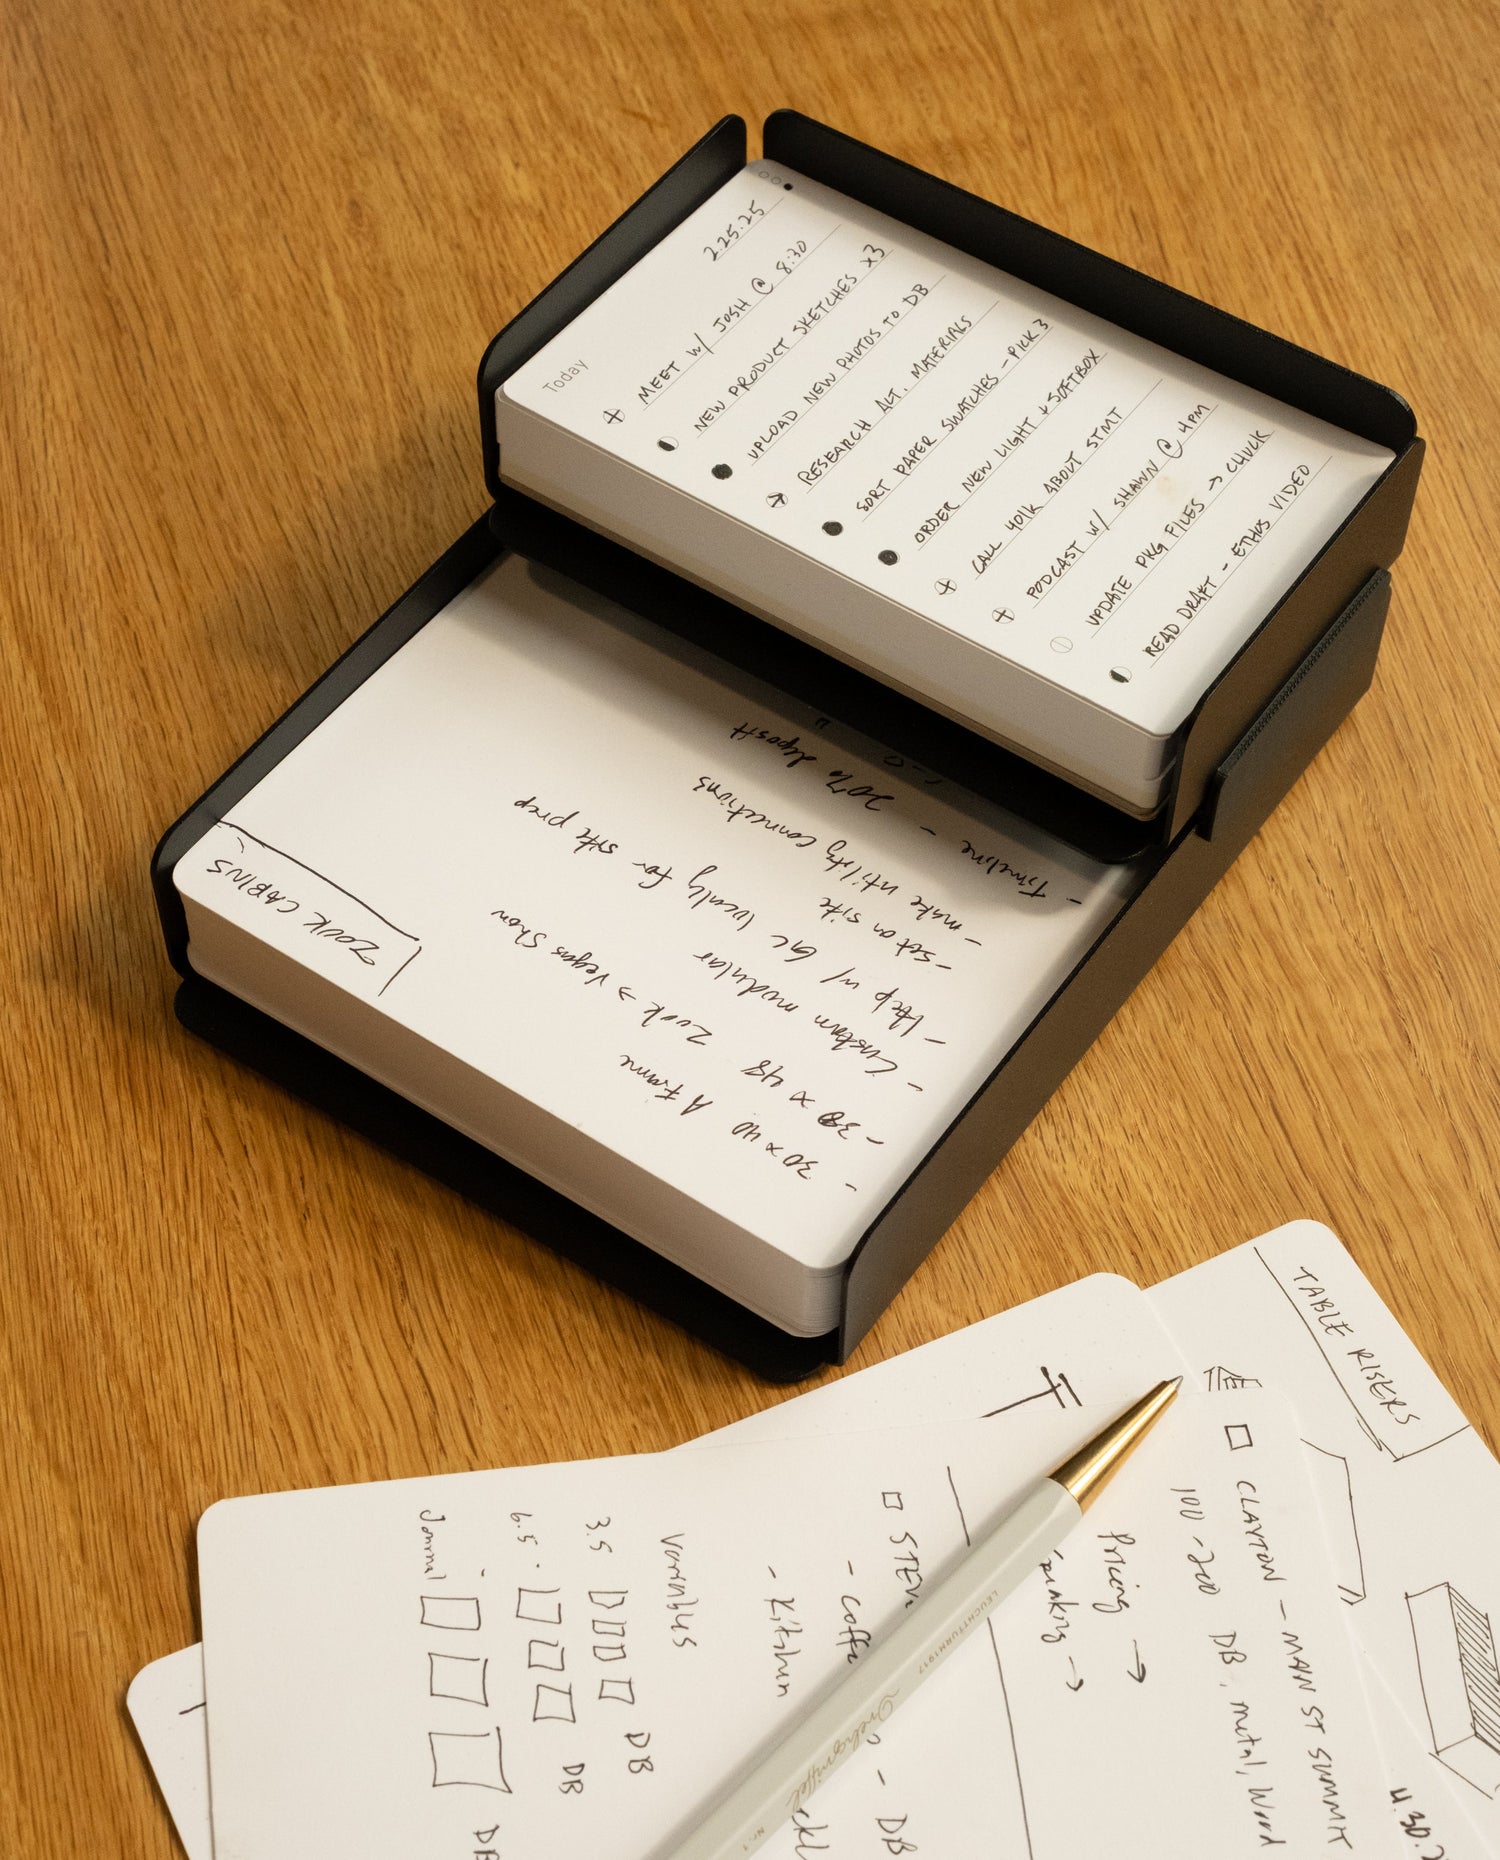 2.25.25
Today
MEET W/ JOSH @ 8:30
NEW PRODUCT SKETCHES X3
UPLOAD NEW PHOTOS TO DB
RESEARCH ALT. MATERIALS
SORT PAPER SWATCHES - PICK 3
ORDER NEW LIGHT + SOFTBOX
CALL 401K ABOUT STMT
PODCAST W/ SHAWN @ 4PM
UPDATE PKG FILES → CHUCK
READ DRAFT - ETHOS VIDEO
ZOOK CABINS
- 30 x 40 A Frame
- 38 x 48 Zook → Vegas Show
- Custom modular
- Help w/ GC locally for site prep
- set on site
- make utility connections
- Timeline - 20% deposit
TABLE RISERS
CLAYTON - MAIN ST SUMMIT
100-200 DB, metal, Wood
Pricing →
- Kitchen
Variables
3.5 DB
6.5 DB
Journal DB
- DB
LEUCHTTURM1917
Drehgriffel
Nr. 1